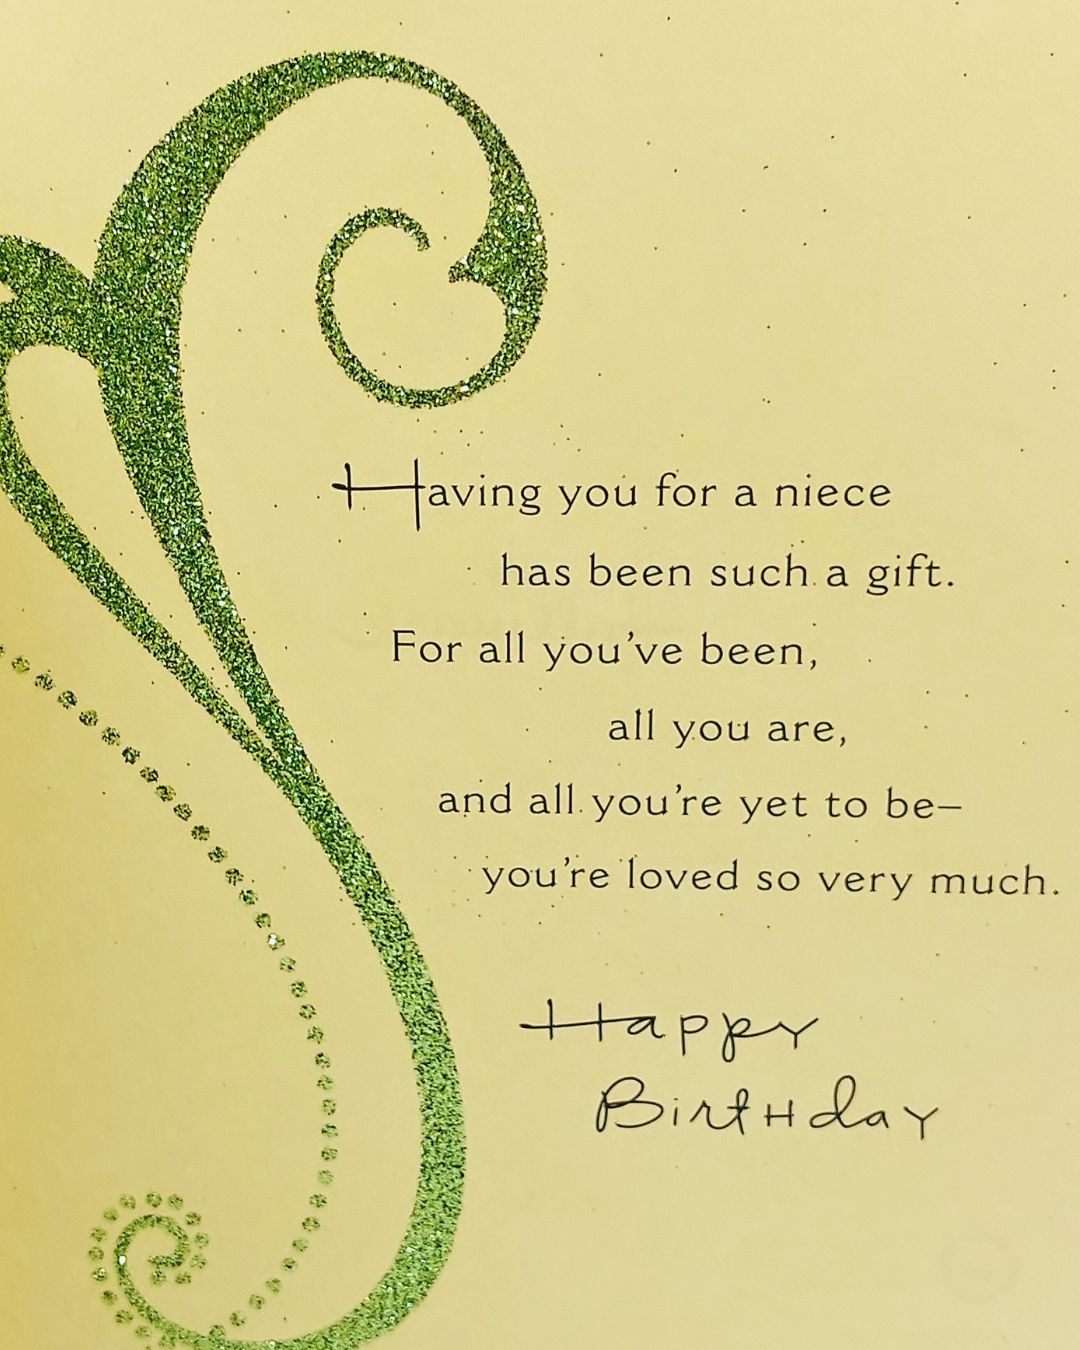 Having you for a niece
has been such a gift.
For all you've been,
all you are,
and all you're yet to be–
you're loved so very much.
Happy
Birthday